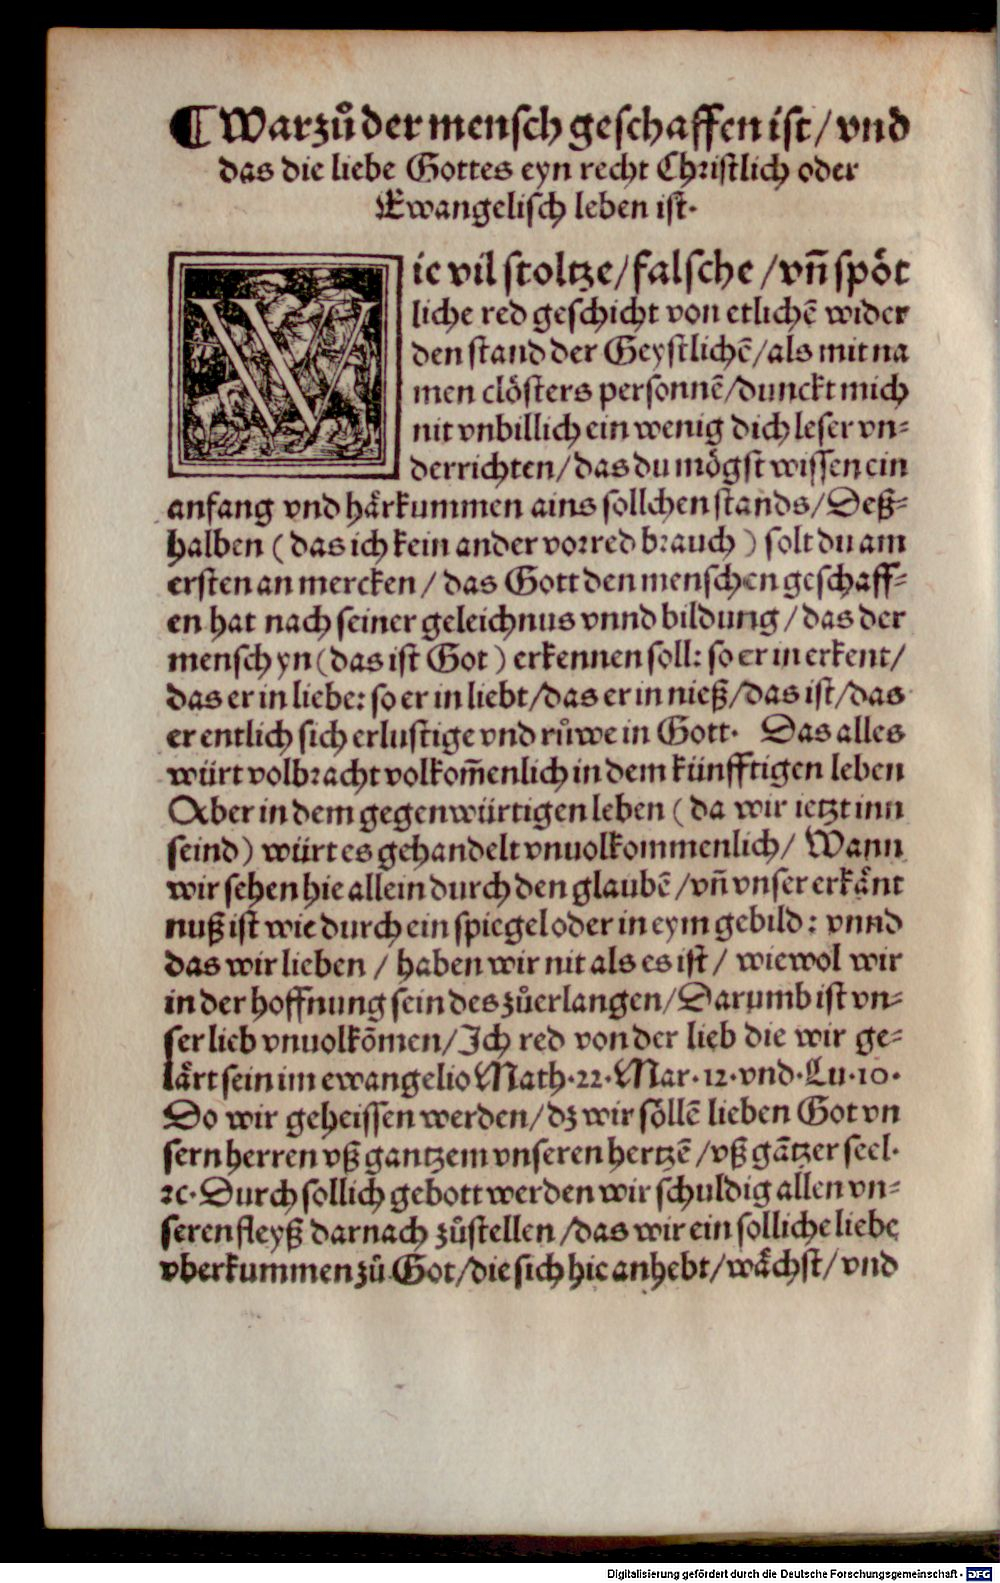 ¶ Warzuͦ der mensch geschaffen ist / vnd
das die liebe Gottes eyn recht Christlich oder
Ewangelisch leben ist.
Wie vil stoltze / falsche / vñ spöt
liche red geschicht von etlichē wider
den stand der Geystlichē / als mit na
men clösters personnē / dunckt mich
nit vnbillich ein wenig dich leser vn⸗
derrichten / das du mögst wissen ein
anfang vnd härkummen ains sollchen stands / Deß⸗
halben ( das ich kein ander vorred brauch ) solt du am
ersten an mercken / das Gott den menschen geschaff⸗
en hat nach seiner geleichnus vnnd bildung / das der
mensch yn ( das ist Got ) erkennen soll: so er in erkent /
das er in liebe: so er in liebt / das er in nieß / das ist / das
er entlich sich erlustige vnd ruͦwe in Gott. Das alles
würt volbracht volkom̄enlich in dem künfftigen leben
Aber in dem gegenwürtigen leben ( da wir ietzt inn
seind ) würt es gehandelt vnuolkommenlich / Wann
wir sehen hie allein durch den glaubē / vñ vnser erkänt
nuß ist wie durch ein spiegel oder in eym gebild : vnnd
das wir lieben / haben wir nit als es ist / wiewol wir
in der hoffnung sein des zuͦerlangen / Darumb ist vn⸗
ser lieb vnuolkōmen / Ich red von der lieb die wir ge⸗
lärt sein im ewangelio Math. 22. Mar. 12. vnd. Lu. 10.
Do wir geheissen werden / dz wir söllē lieben Got vn
sern herren vß gantzem vnseren hertzē / vß gātzer seel.
⁊c. Durch sollich gebott werden wir schuldig allen vn⸗
seren fleyß darnach zuͦstellen / das wir ein solliche liebe
vberkummen zuͦ Got / die sich hie anhebt / wächst / vnd
Digitalisierung gefördert durch die Deutsche Forschungsgemeinschaft - DFG